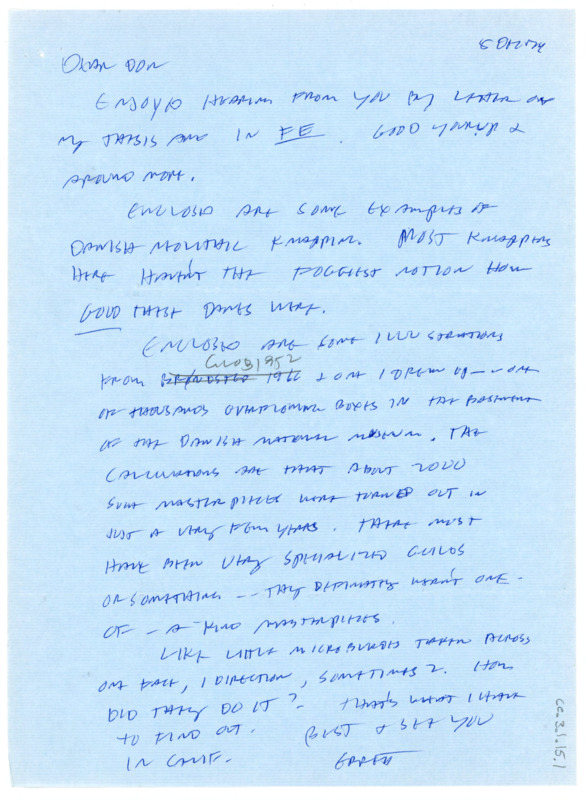 8 Dec 74
Dear Don
Enjoyed hearing from you by letter and
my thesis are in FE. Good &
around more.
Enclosed are some examples of
Danish Neolithic knapping. Most knappers
here haven't the foggiest notion how
GOOD these Danes were.
Enclosed are some illustrations
Glob 1952
from 1960 & one I drew up -- one
of thousands overflowing boxes in the basement
of the Danish National Museum. The
calculations are that about 2000
such masterpieces were turned out in
just a very few years. There must
have been very specialized guilds
or something -- they definately weren't one-
of-a-kind masterpieces.
Like little microblades taken across
one face, 1 direction, sometimes 2. How
did they do it? That's what I have
to find out. Best & see you
in Calif.
Errett
CC.3.1.15.1